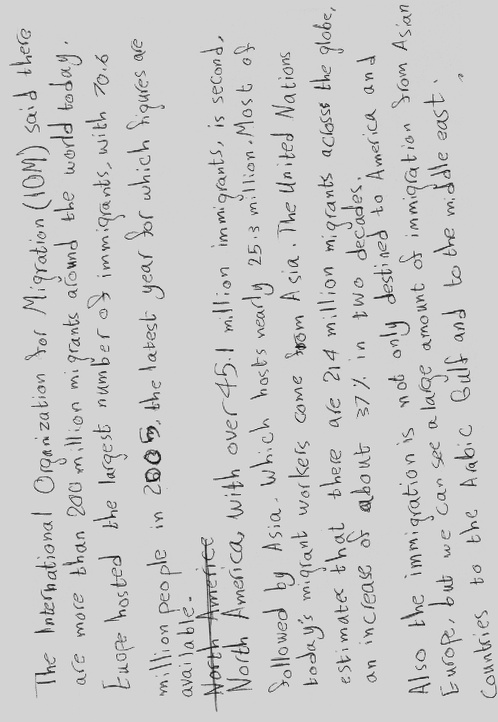 The International Organization for Migration (IOM) said there
are more than 200 million migrants around the world today.
Euope hosted the largest number of immigrants, with 70.6
million people in 2005, the latest year for which figures are
available.
North Americe
North America, with over 45.1 million immigrants, is second,
followed by Asia. Which hosts nearly 25.3 million. Most of
today's migrant workers come from Asia. The United Nations
estimates that there are 214 million migrants across the globe,
an increase of about 37% in two decades.
Also the immigration is not only destined to America and
Europe, but we can see a large amount of immigration from Asian
Countries to the Arabic Gulf and to the middle east.